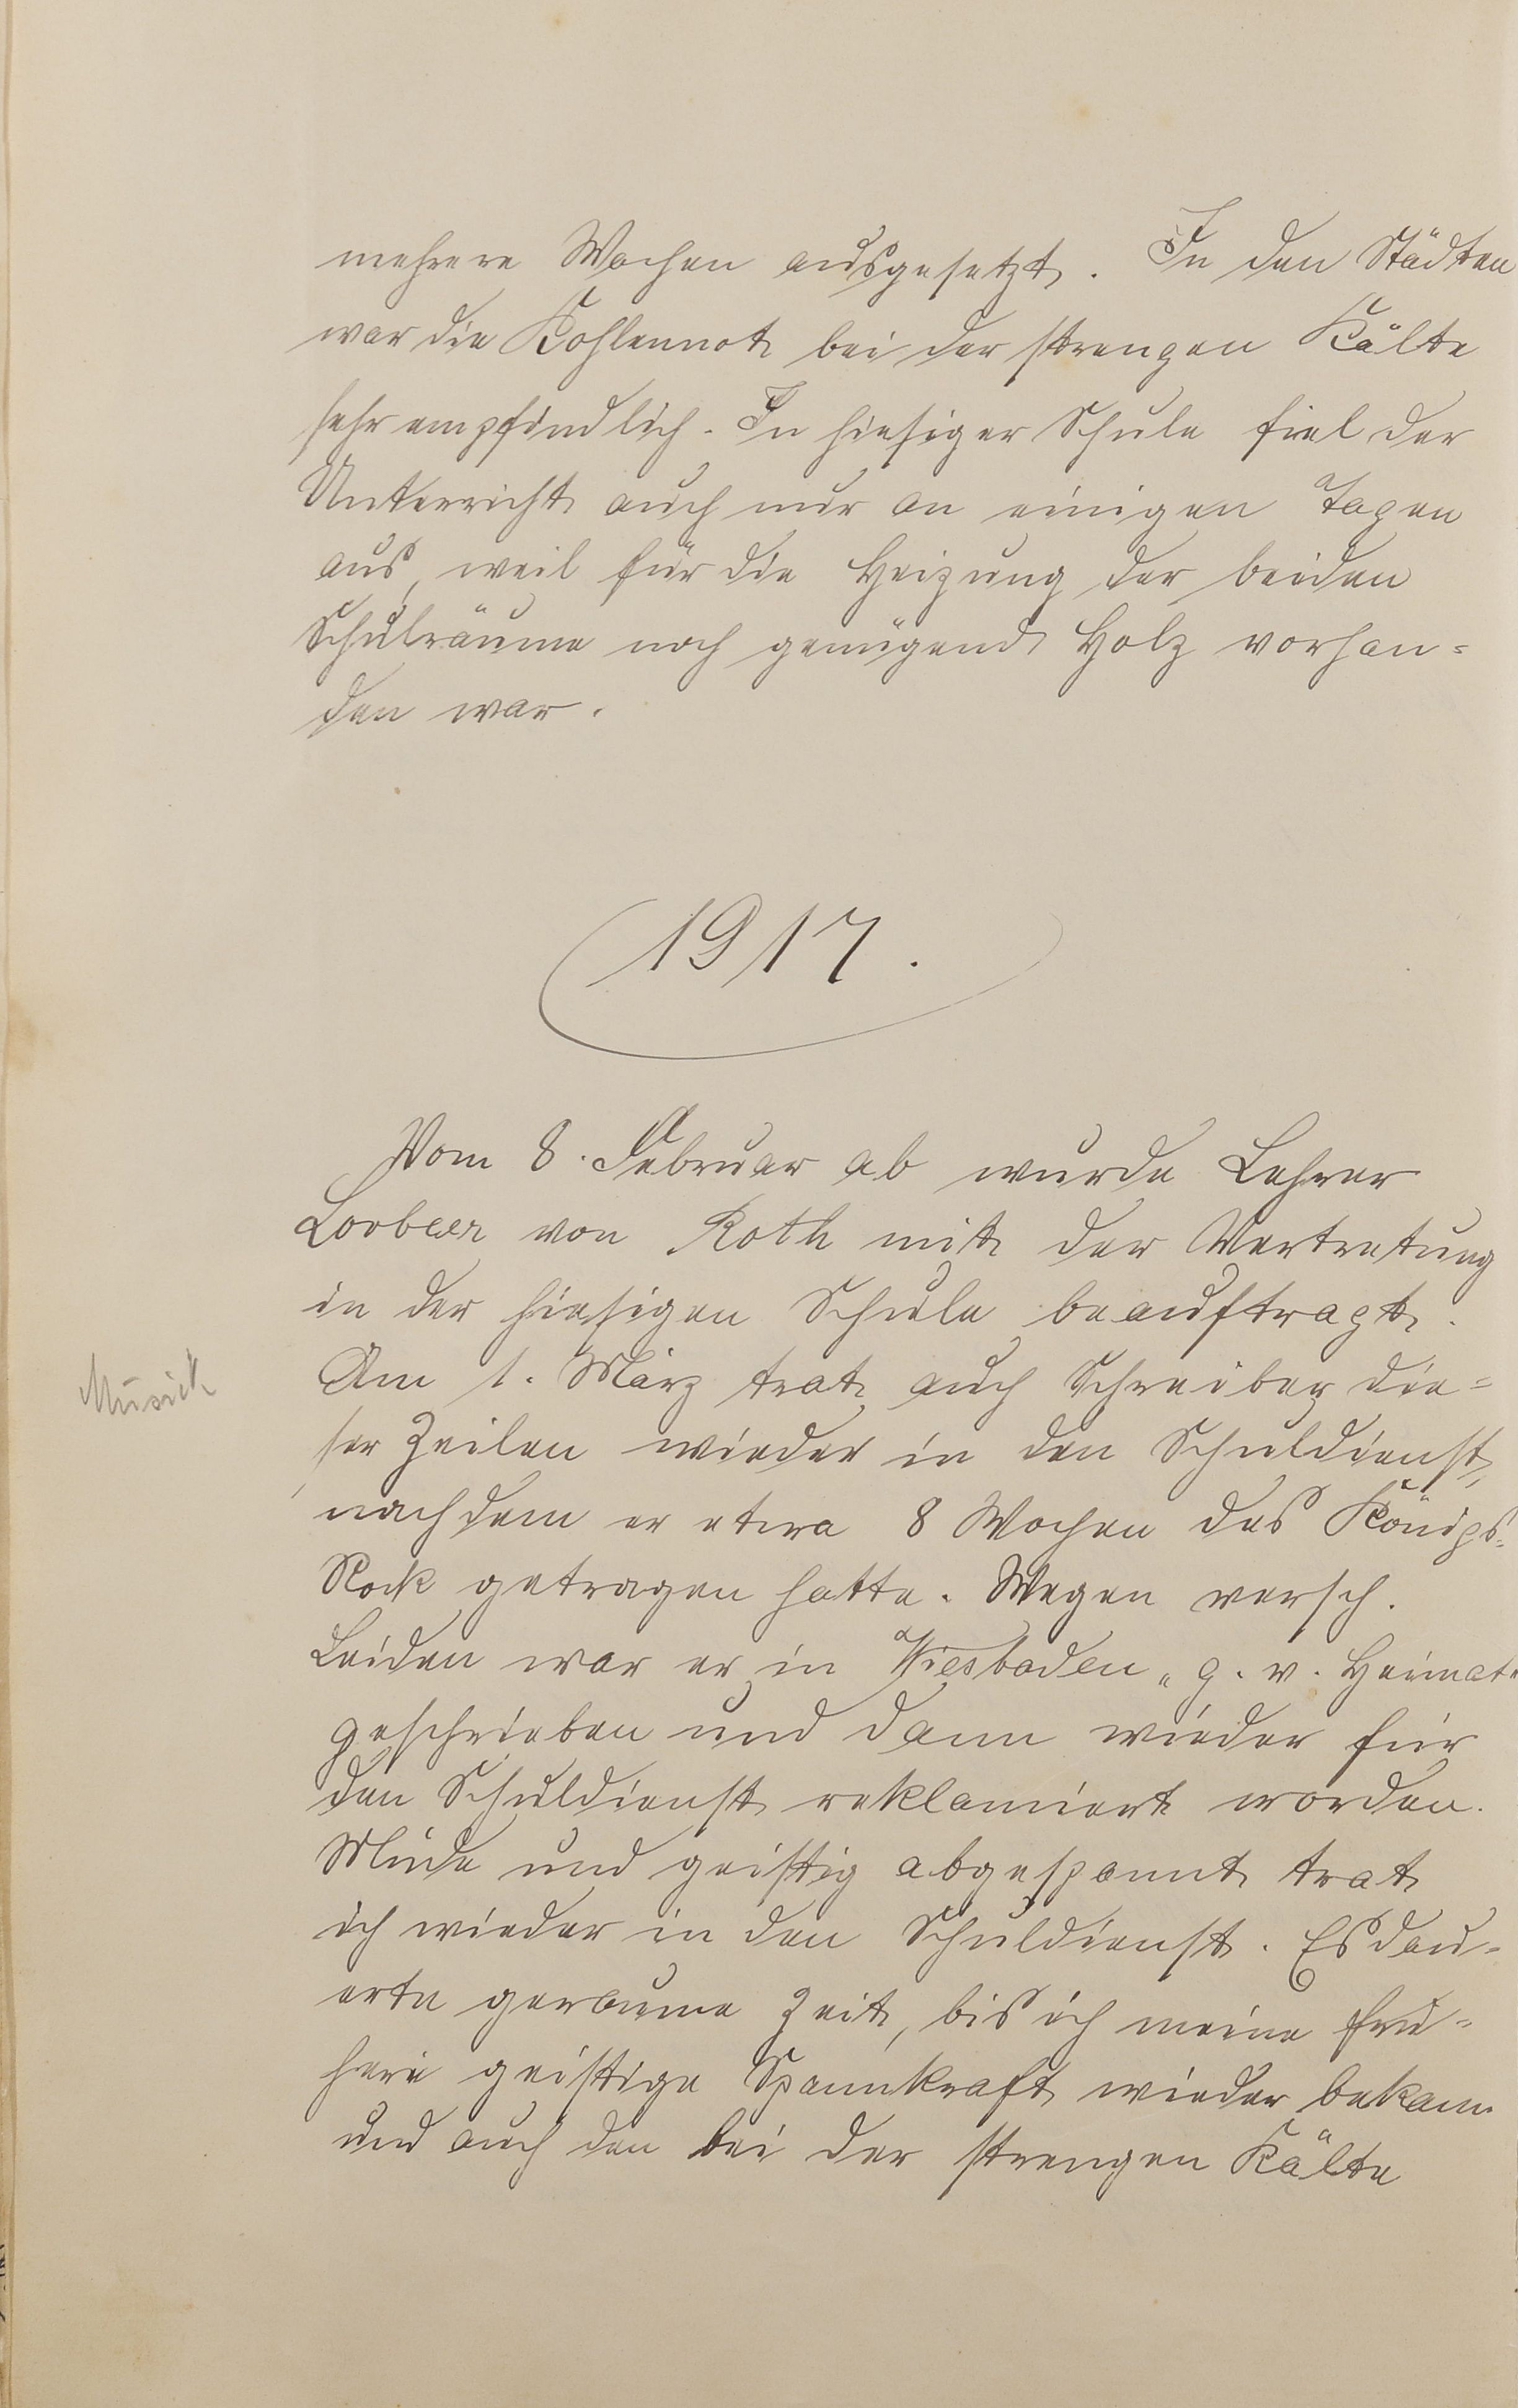 mehrere Wochen ausgesetzt. In den Städten
war die Kohlennot bei der strengen Kälte
sehr empfindlich. In hiesiger Schule fiel der
Unterricht auch nur an einigen Tagen
aus, weil für die Heizung der beiden
Schulräume noch genügend Holz vorhan=
den war.
1917.
Vom 8. Februar ab wurde Lehrer
Loobeer von Roth mit der Vertretung
in der hiesigen Schule beauftragt.
Am 1. März trat auch Schreiber die=
ser Zeilen wieder in den Schuldienst,
nachdem er etwa 8 Wochen des Königs=
Rock getragen hatte. Wegen versch.
Leiden war er in Wiesbaden „g. v. Heimat"
geschrieben und dann wieder für
den Schuldienst reklamiert worden.
Müde und geistig abgespannt trat
ich wieder in den Schuldienst. Es dau=
erte geraume Zeit, bis ich meine frü=
here geistige Spannkraft wieder bekam
und auch den bei der strengen Kälte
Musick